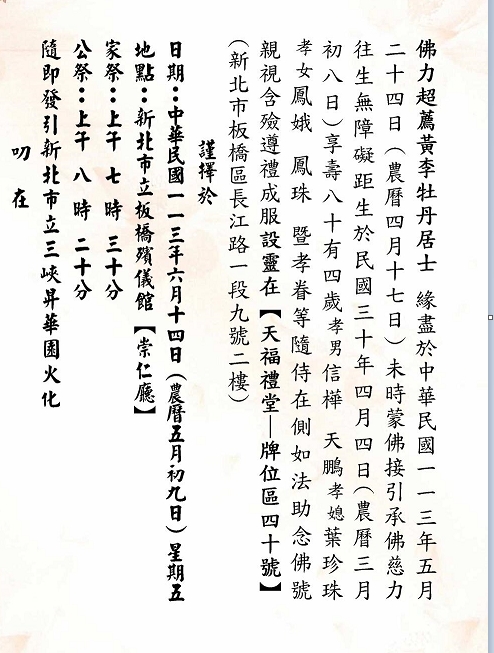 佛力超薦黃李牡丹居士 緣盡於中華民國一一三年五月
二十四日（農曆四月十七日）未時蒙佛接引承佛慈力
往生無障礙距生於民國三十年四月四日（農曆三月
初八日）享壽八十有四歲孝男信樺 天鵬孝媳葉珍珠
孝女鳳娥 鳳珠 暨孝眷等隨侍在側如法助念佛號
親視含殮遵禮成服設靈在【天福禮堂—牌位區四十號】
（新北市板橋區長江路一段九號二樓）
謹擇於
日期：中華民國一一三年六月十四日（農曆五月初九日）星期五
地點：新北市立板橋殯儀館【崇仁廳】
家祭：上午 七 時 三十分
公祭：上午 八 時 二十分
隨即發引新北市立三峽昇華園火化
叨 在